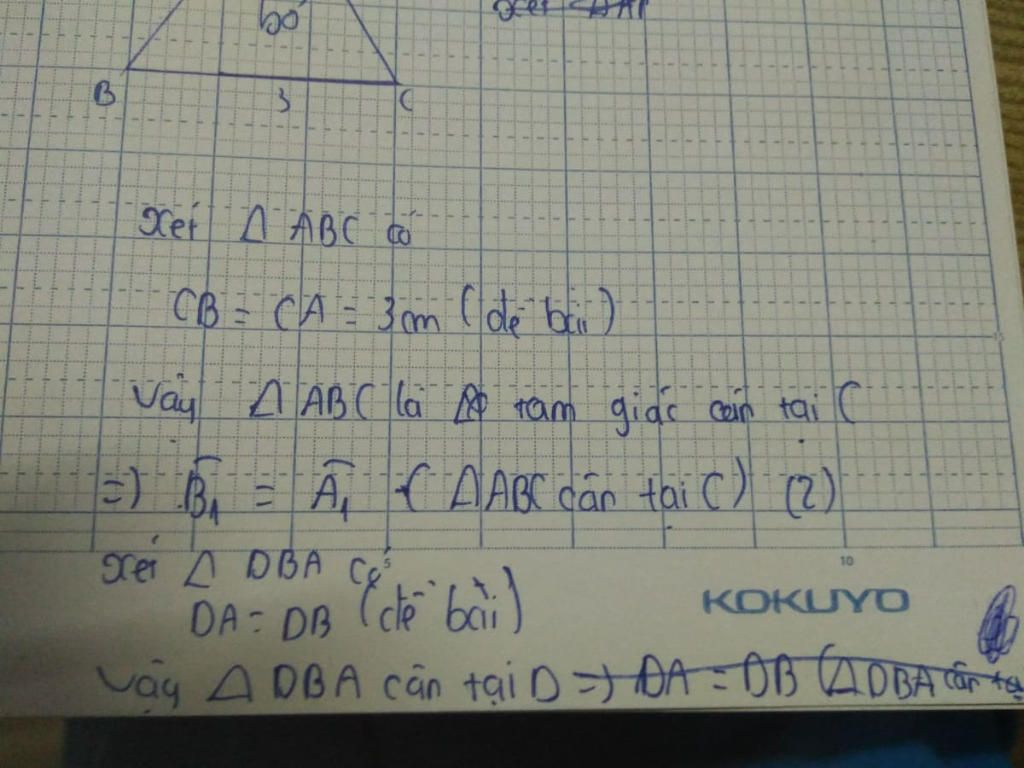 60°
B 3 C
Xét Δ ABC có
CB = CA = 3cm (đề bài)
Vậy Δ ABC là tam giác cân tại C
=) B₁ = A₁ ( Δ ABC cân tại C) (2)
Xét Δ DBA có
10
DA = DB (đề bài)
KOKUYO
Vậy Δ DBA cân tại D =) DA = DB (Δ DBA cân tạ